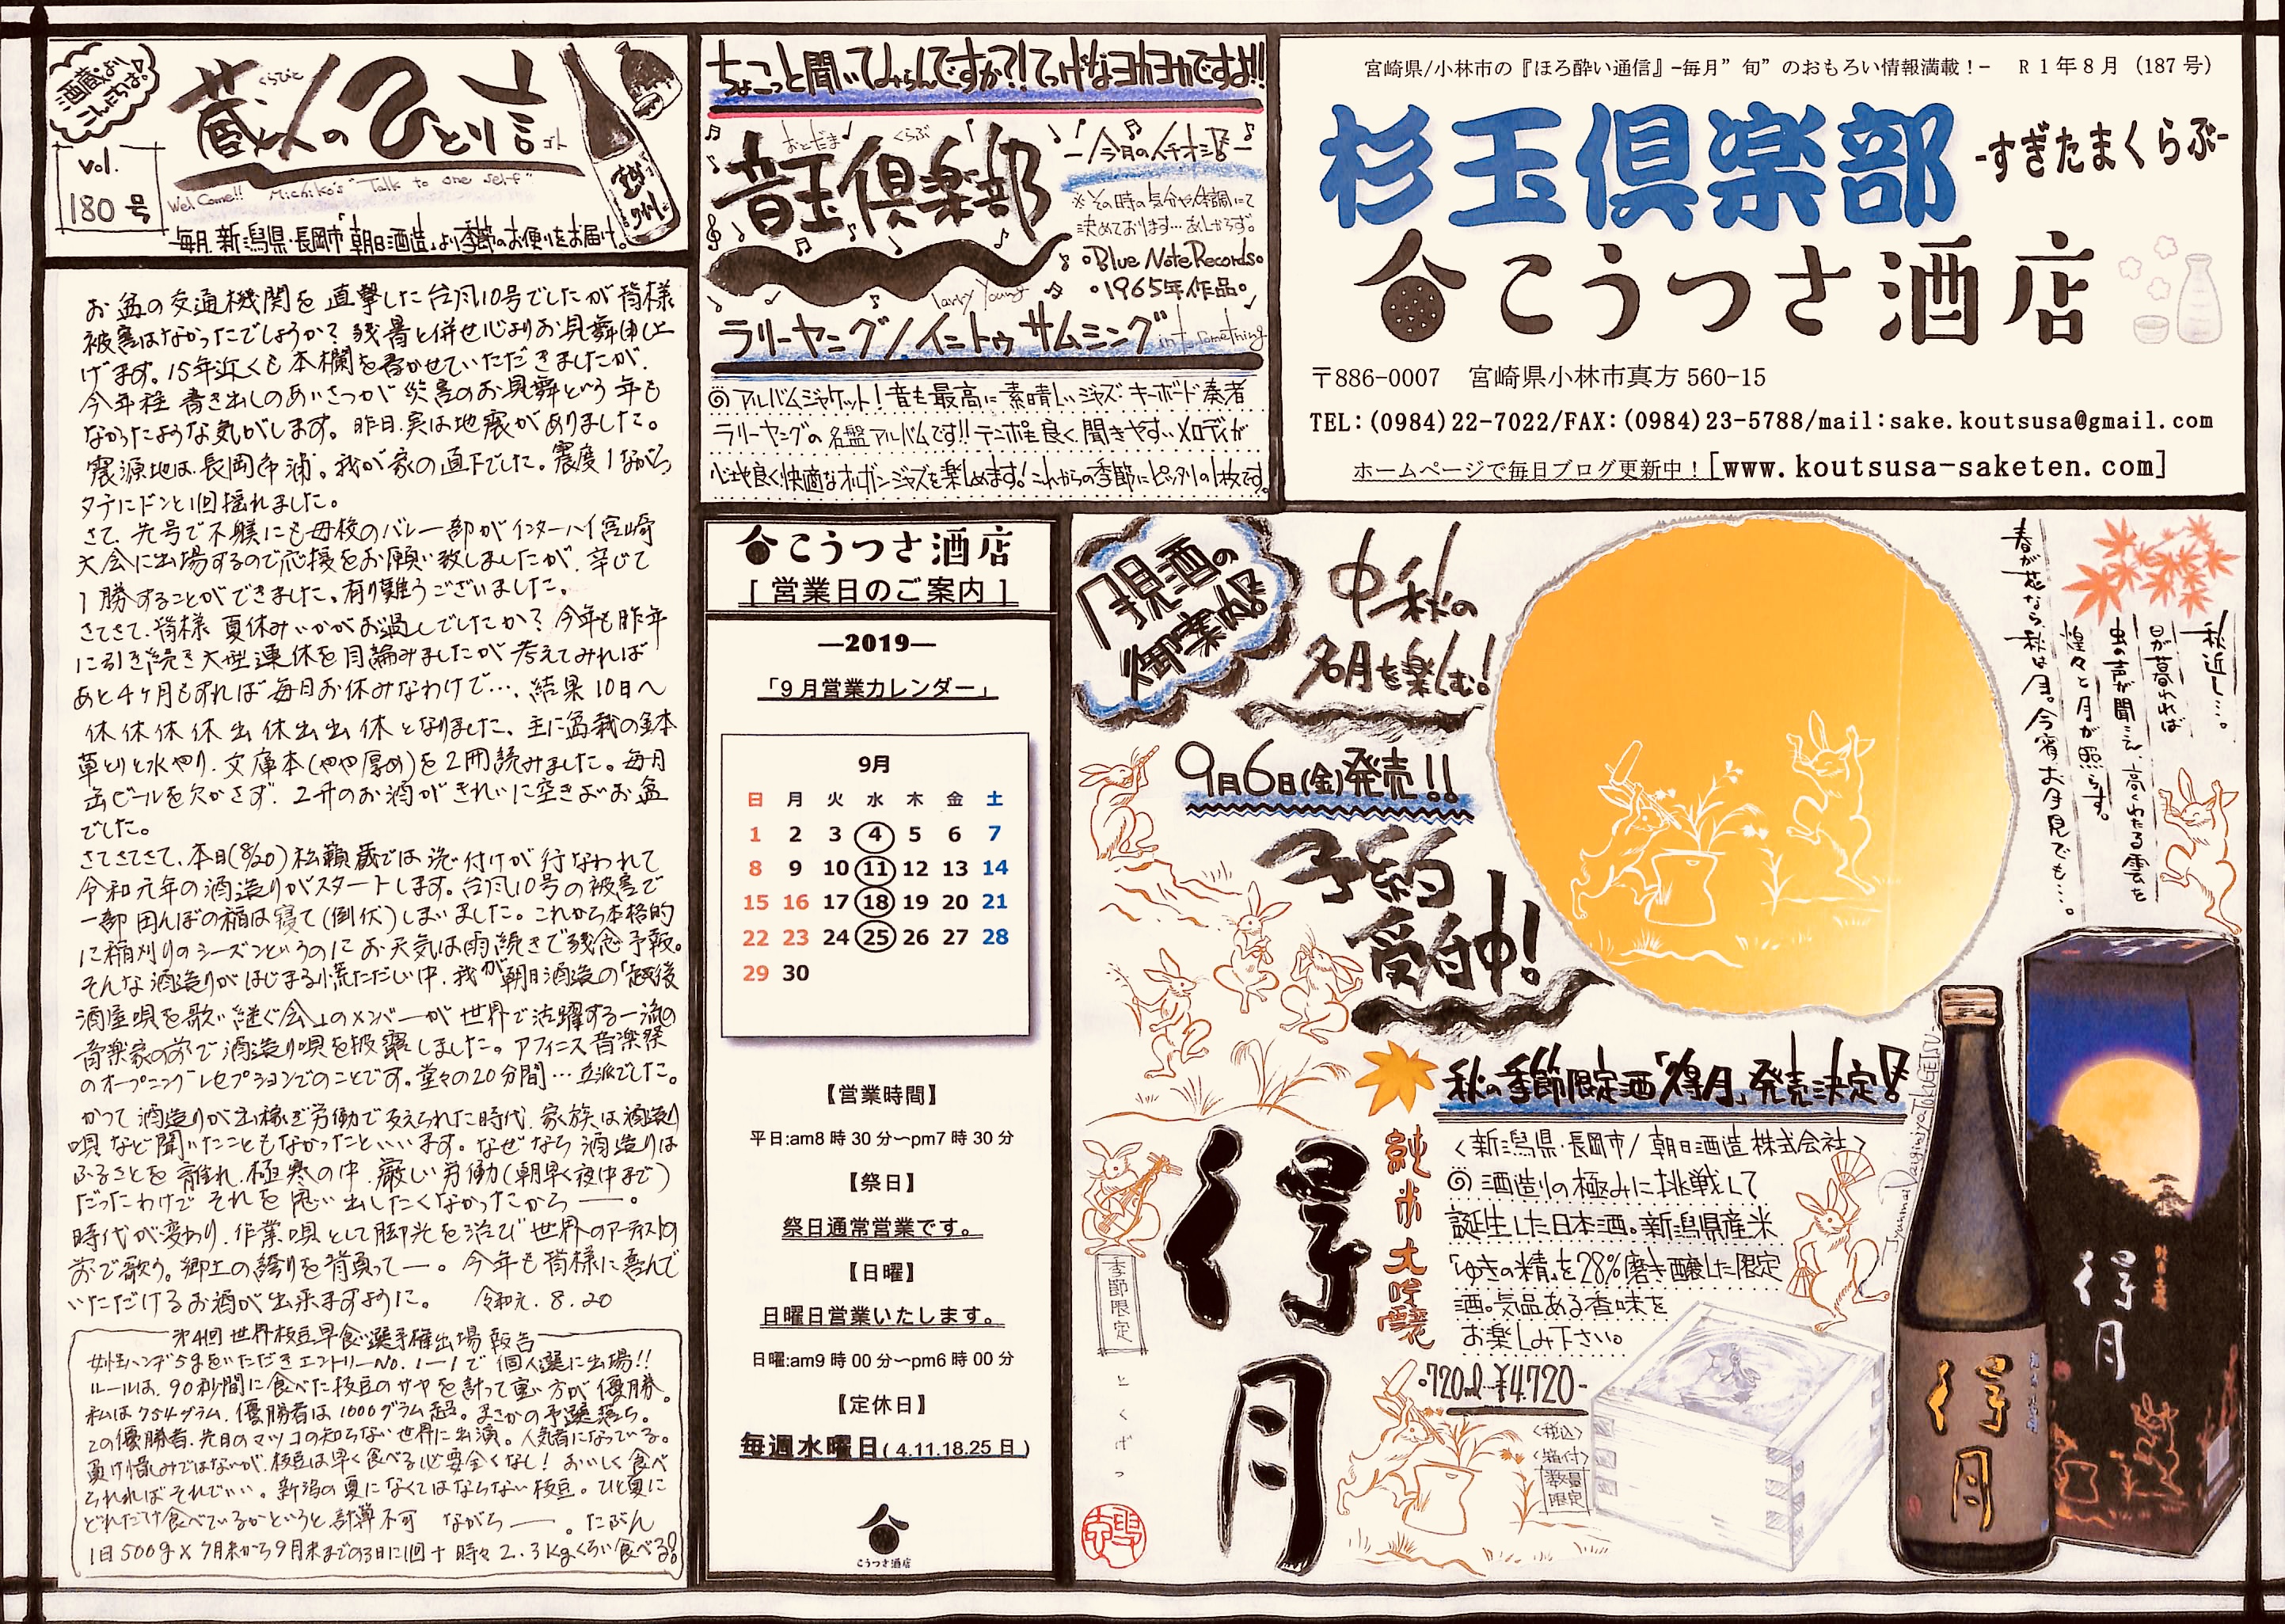 宮崎県/小林市の『ほろ酔い通信』-毎月”旬”のおもろい情報満載！-　R1年8月（187号）
杉玉倶楽部
-すぎたまくらぶ-
こうつさ酒店
〒886-0007　宮崎県小林市真方560-15
TEL:(0984)22-7022/FAX:(0984)23-5788/mail:sake.koutsusa@gmail.com
ホームページで毎日ブログ更新中！[www.koutsusa-saketen.com]
ちょこっと聞いてみらんですか?!てげなヨカヨカですよ!!
おとだま くらぶ
音玉倶楽部
-今月のイチオシ-
※その時の気分や体調にて
決めております…あしからず。
Blue Note Records
1965年作品
Larry Young
ラリーヤング/イントゥサムミング
into something
◎アルバムジャケット！音も最高に素晴しいジャズ・キーボード奏者
ラリーヤングの名盤アルバムです!!テンポも良く、聞きやすいメロディが
心地良く快適なオルガンジャズを楽しめます！これからの季節にピッタリの1枚です。
vol.
180号
くらびと
蔵人のひとり言
ゴト
Wel Come!! Michiko's "Talk to one self"
毎月、新潟県・長岡市「朝日酒造」より季節のお便りをお届け。
お盆の交通機関を直撃した台風10号でしたが皆様
被害はなかったでしょうか？残暑と併せ心よりお見舞申し上
げます。15年近くも本欄を書かせていただきましたが、
今年程書き出しのあいさつが災害のお見舞という年も
なかったような気がします。昨日、実は地震がありました。
震源地は、長岡市浦。我が家の直下でした。震度1ながら
タテにドンと1回揺れました。
さて、先号で不躾にも母校のバレー部がインターハイ宮崎
大会に出場するので応援をお願い致しましたが、辛じて
1勝することができました。有り難うございました。
さてさて、皆様夏休みいかがお過しでしたか？今年も昨年
に引き続き大型連休を目論みましたが考えてみれば
あと4ヶ月もすれば毎日お休みなわけで…、結果10日へ
休休休休出休出出休となりました。主に盆栽の鉢本
草とりと水やり、文庫本(やや厚め)を2冊読みました。毎日
缶ビールを欠かさず、2升のお酒がきれいに空きよお盆
でした。
さてさてさて、本日(8/20)松籟蔵では洗い付けが行なわれて
令和元年の酒造りがスタートします。台風10号の被害で
一部田んぼの稲は寝て(倒伏)しまいました。これから本格的
に稲刈りのシーズンというのにお天気は雨続きで残念予報。
そんな酒造りがはじまる慌ただしい中、我が朝日酒造の「越後
酒屋唄を歌い継ぐ会」のメンバーが世界で活躍する一流の
音楽家の前で酒造り唄を披露しました。アフィニス音楽祭
のオープニングレセプションでのことです。堂々の20分間…立派でした。
かつて酒造りが出稼ぎ労働で支えられた時代、家族は酒造り
唄など聞いたこともなかったといいます。なぜなら酒造りは
ふるさとを離れ、極寒の中、厳しい労働(朝早く夜中まで)
だったわけでそれを思い出したくなかったから——。
時代が変わり、作業唄として脚光を浴び世界のアーティストの
前で歌う。郷土の誇りを背負って——。今年も皆様に喜んで
いただけるお酒が出来ますように。　令和元.8.20
第4回世界枝豆早食い選手権出場報告
女性ハンデ5gをいただきエントリーNo.1-1で個人選に出場!!
ルールは、90秒間に食べた枝豆のサヤを計って重い方が優勝。
私は754グラム、優勝者は1000グラム超。まさかの予選落ち。
この優勝者、先日のマツコの知らない世界に出演。人気者になっている。
負け惜しみではないが、枝豆は早く食べる必要全くなし！おいしく食べ
られればそれでいい。新潟の夏になくてはならない枝豆。ひと夏に
どれだけ食べているかというと、計算不可　ながら——。たぶん
1日500g×7月末から9月末までの3日に1回+時々2.3kgくらい食べる!!
こうつさ酒店
[営業日のご案内]
―2019―
「9月営業カレンダー」
9月
日 月 火 水 木 金 土
1 2 3 4 5 6 7
8 9 10 11 12 13 14
15 16 17 18 19 20 21
22 23 24 25 26 27 28
29 30
【営業時間】
平日:am8時30分～pm7時30分
【祭日】
祭日通常営業です。
【日曜】
日曜日営業いたします。
日曜:am9時00分～pm6時00分
【定休日】
毎週水曜日(4.11.18.25日)
こうつさ酒店
月見酒の
御案内!!
中秋の
名月を楽しむ！
9月6日(金)発売!!
予約
受付中！
秋近し…。
日が暮れれば
虫の声が聞こえ、高くわたる雲を
煌々と月が照らす。
春が花なら、秋は月。今宵お月見でも…。
秋の季節限定酒「得月」発売決定!!
<新潟県・長岡市/朝日酒造株式会社>
◎酒造りの極みに挑戦して
誕生した日本酒。新潟県産米
「ゆきの精」を28%磨き醸した限定
酒。気品ある香味を
お楽しみ下さい。
720ml ¥4,720-
<税込>
<箱付>
数量
限定
純米大吟醸
得月
季節限定
とくげつ
Jyunmai Daiginjyo TOKUGETSU
得月
得月